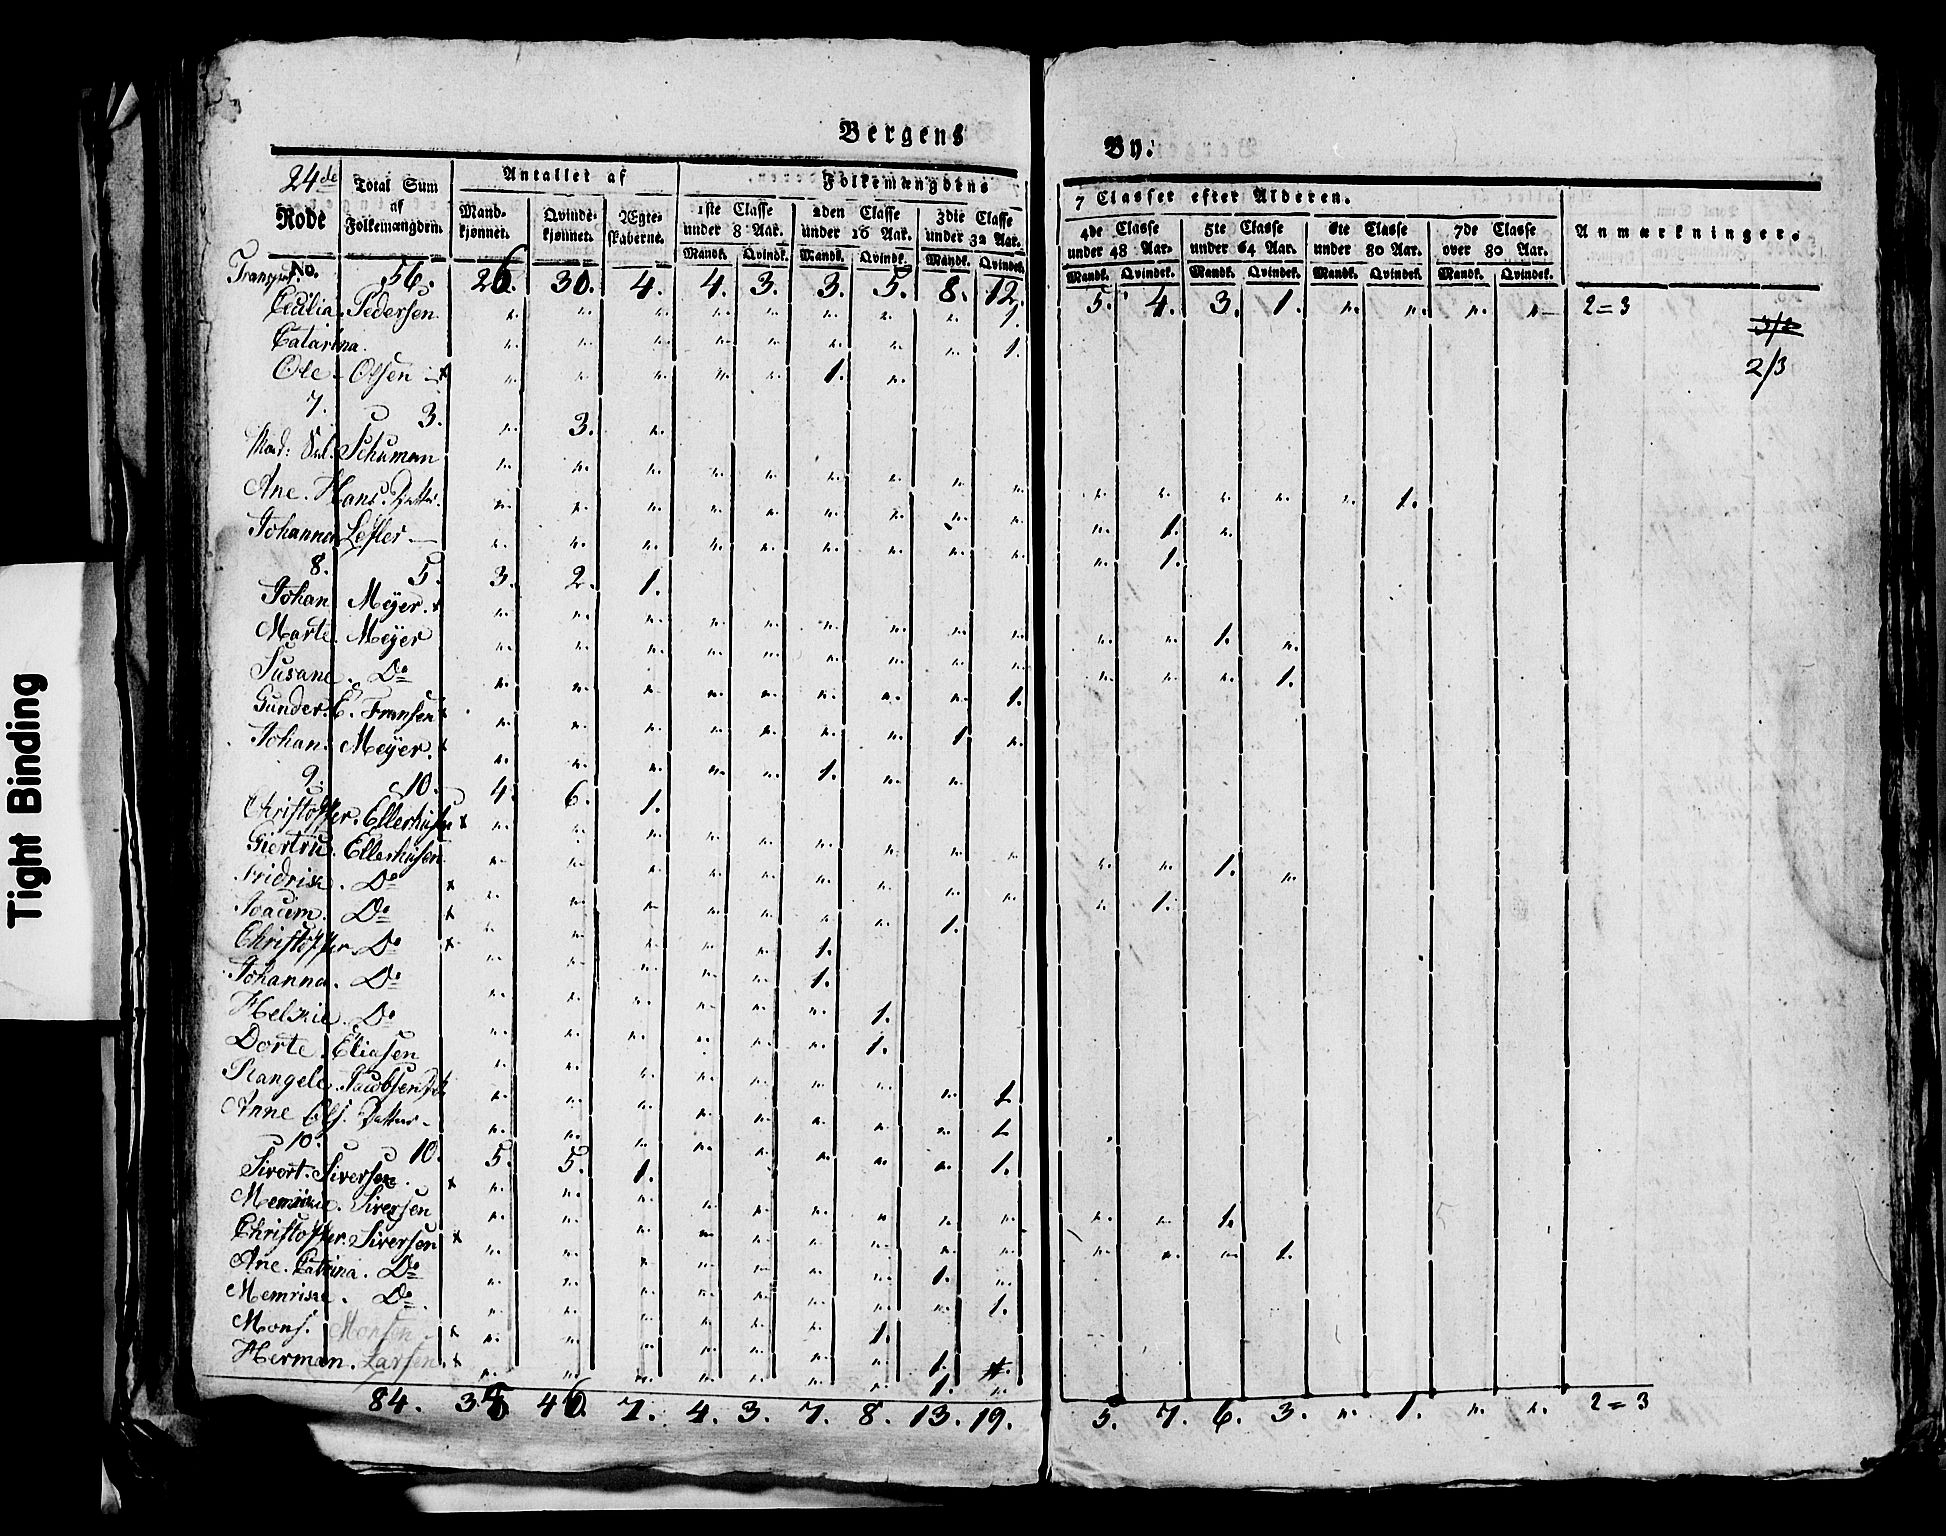 Bergens By.
24de Rode No.
Total Sum af Folkemængden.
Antallet af
Mandkjønnet. Qvindekjønnet. Ægteskaberne.
Folkemængdens 7 Classer efter Alderen.
1ste Classe under 8 Aar. 2den Classe under 16 Aar. 3die Classe under 32 Aar. 4de Classe under 48 Aar. 5te Classe under 64 Aar. 6te Classe under 80 Aar. 7de Classe over 80 Aar. Anmærkninger.
Mandk. Qvindek. Mandk. Qvindk. Mandk. Qvindek. Mandk. Qvindek. Mandk. Qvindek. Mandk. Qvindek. Mandk. Qvindek.
Transport. 56. 26. 30. 4. 4. 3. 3. 5. 8. 12. 5. 4. 3. 1. " " " " 2=3
Cecilia Pedersen " " " " " " " " 1.
Catarina. " " " " " " " " 1. 2/3
Ole Olsen x " " " " " 1. "
7. 3. " 3. "
Mad: Sal. Schuman " " " " " " " " " " " " " " 1.
Ane. Hans. Datter. " " " " " " " " " " 1. "
Johanna Lesler — " " " " " " " " " " 1.
8. 5. 3. 2. 1.
Johan Meÿer. x " " " " " " " " " " " 1. "
Marte Meÿer " " " " " " " " " " " " 1.
Susane. Do " " " " " " " " 1.
Gunder. E. Fransen x " " " " " " " 1 "
Johan. Meÿer. x " " " " " 1. " "
9. 10. 4. 6. 1.
Christoffer. Ellerhusen x " " " " " " " " " " " 1. "
Giertru. Ellerhusen " " " " " " " " 1.
Fridrik. Do x " " " " " " " 1.
Joacim. Do x " " " " " 1.
Christoffer Do x " " " " " 1.
Johanna. Do " " " " " " 1.
Helmie. Do " " " " " " 1.
Dorte. Eliasen " " " " " " " " 1
Rangele. Jacobsen Dat " " " " " " " " 1
Anne Ols. Datter - " " " " " " " " 1.
10. 10. 5. 5. 1.
Sivert. Siversen. x " " " " " " " " " " " 1.
Siversen " " " " " " " " " " " " 1.
Christoffer. Siversen x " " " " " " " 1. "
Ane. Catrina. Do " " " " " " " " 1.
Do. " " " " " " 1.
Mons. Monsen x " " " " " " " 1.
Herman. Larsen. x " " " " " " 1. "
84. 46. 7. 4. 3. 7. 8. 13. 19. 5. 7. 6. 3. " 1. " " 2=3
Tight Binding